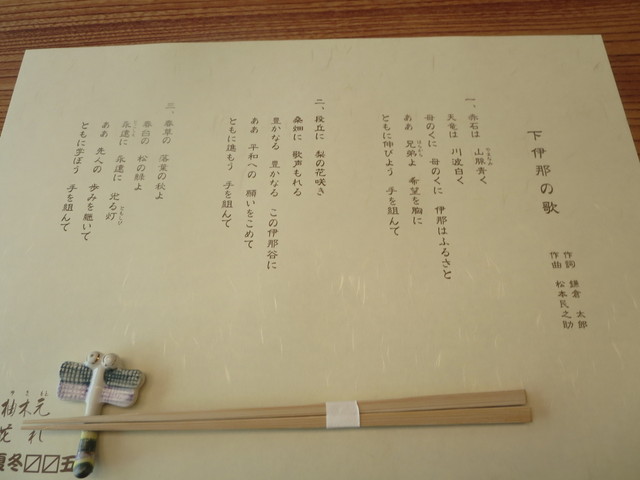 下伊那の歌
作詞 鎌倉 太郎
作曲 松本民之助
一、赤石は 山脈青く
天竜は 川波白く
母のくに 母のくに 伊那はふるさと
ああ 兄弟よ 希望を胸に
ともに伸びよう 手を組んで
二、段丘に 梨の花咲き
桑畑に 歌声もれる
豊かなる 豊かなる この伊那谷に
ああ 平和への 願いをこめて
ともに進もう 手を組んで
三、春草の 落葉の秋よ
春白の 松の緑よ
永遠に 永遠に 光る灯
ああ 先人の 歩みを継いで
ともに学ぼう 手を組んで
柚木元